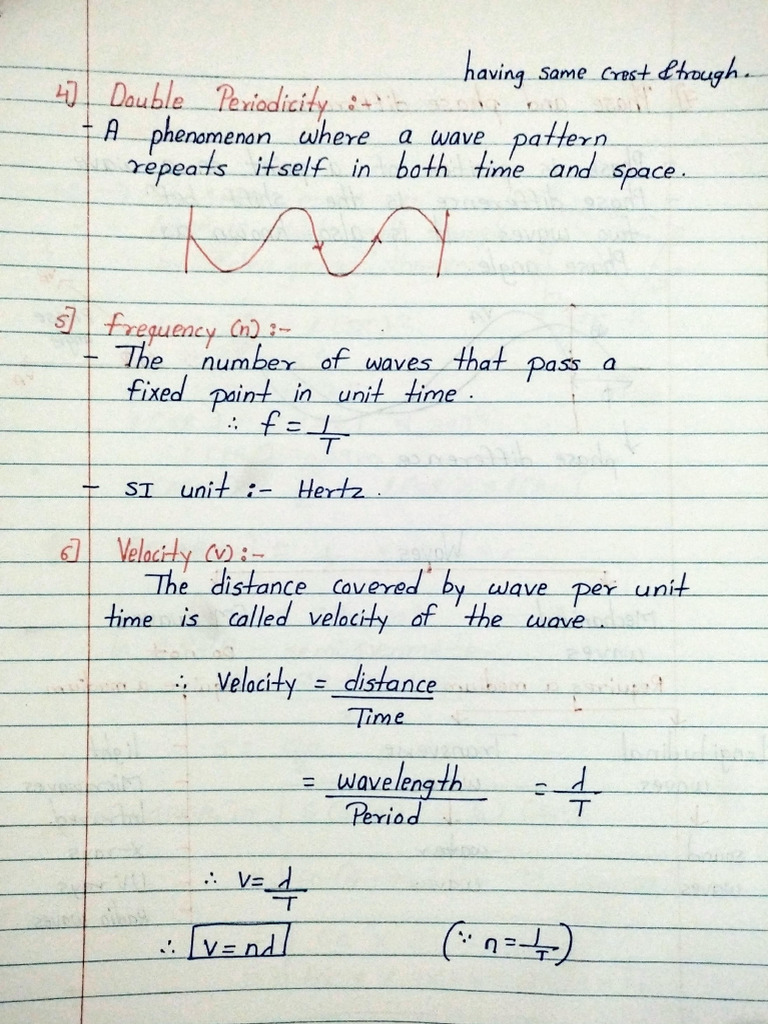 having same crest & trough.
4] Double Periodicity :-
- A phenomenon where a wave pattern
repeats itself in both time and space.
5] Frequency (n) :-
- The number of waves that pass a
fixed point in unit time.
∴ f = 1/T
- SI unit :- Hertz.
6] Velocity (v) :-
The distance covered by wave per unit
time is called velocity of the wave.
∴ Velocity = distance/Time
= wavelength/Period = λ/T
∴ v = λ/T
∴ v = nλ (∵ n = 1/T)